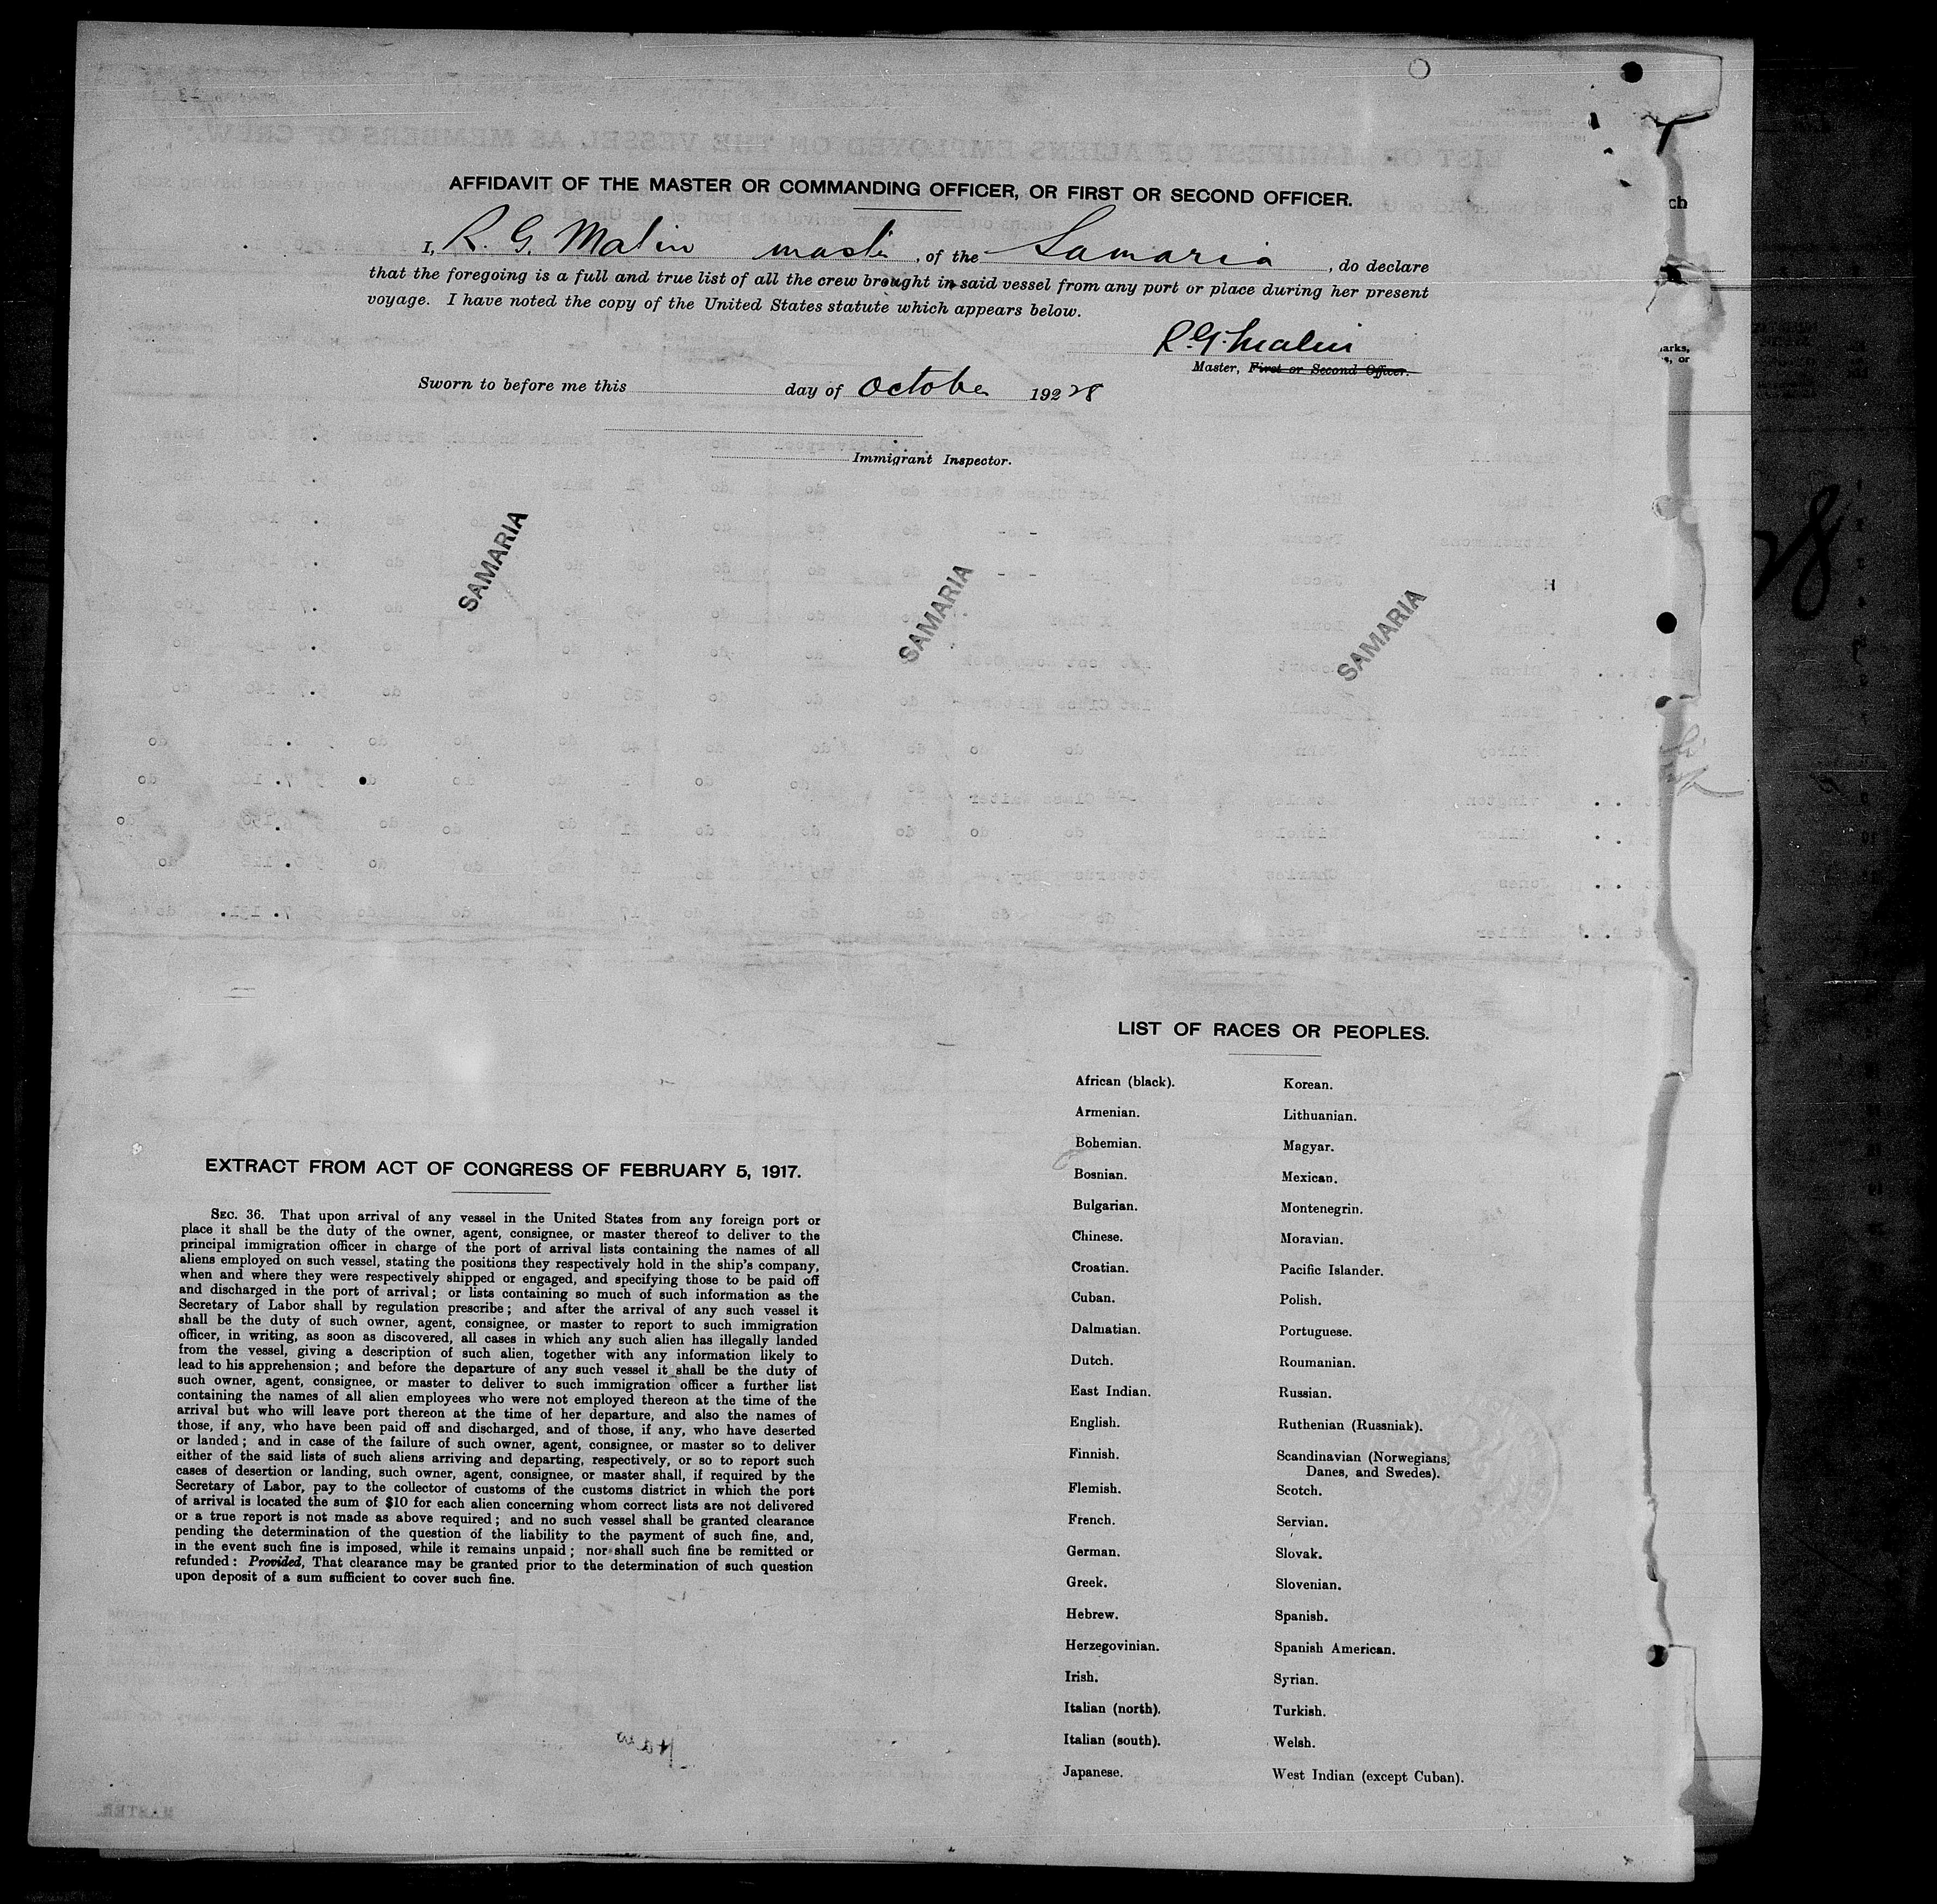 AFFIDAVIT OF THE MASTER OR COMMANDING OFFICER, OR FIRST OR SECOND OFFICER.
I, R. G. Malin master, of the Samaria, do declare
that the foregoing is a full and true list of all the crew brought in said vessel from any port or place during her present
voyage. I have noted the copy of the United States statute which appears below.
R. G. Malin
Master, First or Second Officer.
Sworn to before me this day of October 192 28
Immigrant Inspector.
SAMARIA
SAMARIA
SAMARIA
28
EXTRACT FROM ACT OF CONGRESS OF FEBRUARY 5, 1917.
SEC. 36. That upon arrival of any vessel in the United States from any foreign port or
place it shall be the duty of the owner, agent, consignee, or master thereof to deliver to the
principal immigration officer in charge of the port of arrival lists containing the names of all
aliens employed on such vessel, stating the positions they respectively hold in the ship's company,
when and where they were respectively shipped or engaged, and specifying those to be paid off
and discharged in the port of arrival; or lists containing so much of such information as the
Secretary of Labor shall by regulation prescribe; and after the arrival of any such vessel it
shall be the duty of such owner, agent, consignee, or master to report to such immigration
officer, in writing, as soon as discovered, all cases in which any such alien has illegally landed
from the vessel, giving a description of such alien, together with any information likely to
lead to his apprehension; and before the departure of any such vessel it shall be the duty of
such owner, agent, consignee, or master to deliver to such immigration officer a further list
containing the names of all alien employees who were not employed thereon at the time of the
arrival but who will leave port thereon at the time of her departure, and also the names of
those, if any, who have been paid off and discharged, and of those, if any, who have deserted
or landed; and in case of the failure of such owner, agent, consignee, or master so to deliver
either of the said lists of such aliens arriving and departing, respectively, or so to report such
cases of desertion or landing, such owner, agent, consignee, or master shall, if required by the
Secretary of Labor, pay to the collector of customs of the customs district in which the port
of arrival is located the sum of $10 for each alien concerning whom correct lists are not delivered
or a true report is not made as above required; and no such vessel shall be granted clearance
pending the determination of the question of the liability to the payment of such fine, and,
in the event such fine is imposed, while it remains unpaid; nor shall such fine be remitted or
refunded: Provided, That clearance may be granted prior to the determination of such question
upon deposit of a sum sufficient to cover such fine.
LIST OF RACES OR PEOPLES.
African (black).
Armenian.
Bohemian.
Bosnian.
Bulgarian.
Chinese.
Croatian.
Cuban.
Dalmatian.
Dutch.
East Indian.
English.
Finnish.
Flemish.
French.
German.
Greek.
Hebrew.
Herzegovinian.
Irish.
Italian (north).
Italian (south).
Japanese.
Korean.
Lithuanian.
Magyar.
Mexican.
Montenegrin.
Moravian.
Pacific Islander.
Polish.
Portuguese.
Roumanian.
Russian.
Ruthenian (Russniak).
Scandinavian (Norwegians,
Danes, and Swedes).
Scotch.
Servian.
Slovak.
Slovenian.
Spanish.
Spanish American.
Syrian.
Turkish.
Welsh.
West Indian (except Cuban).